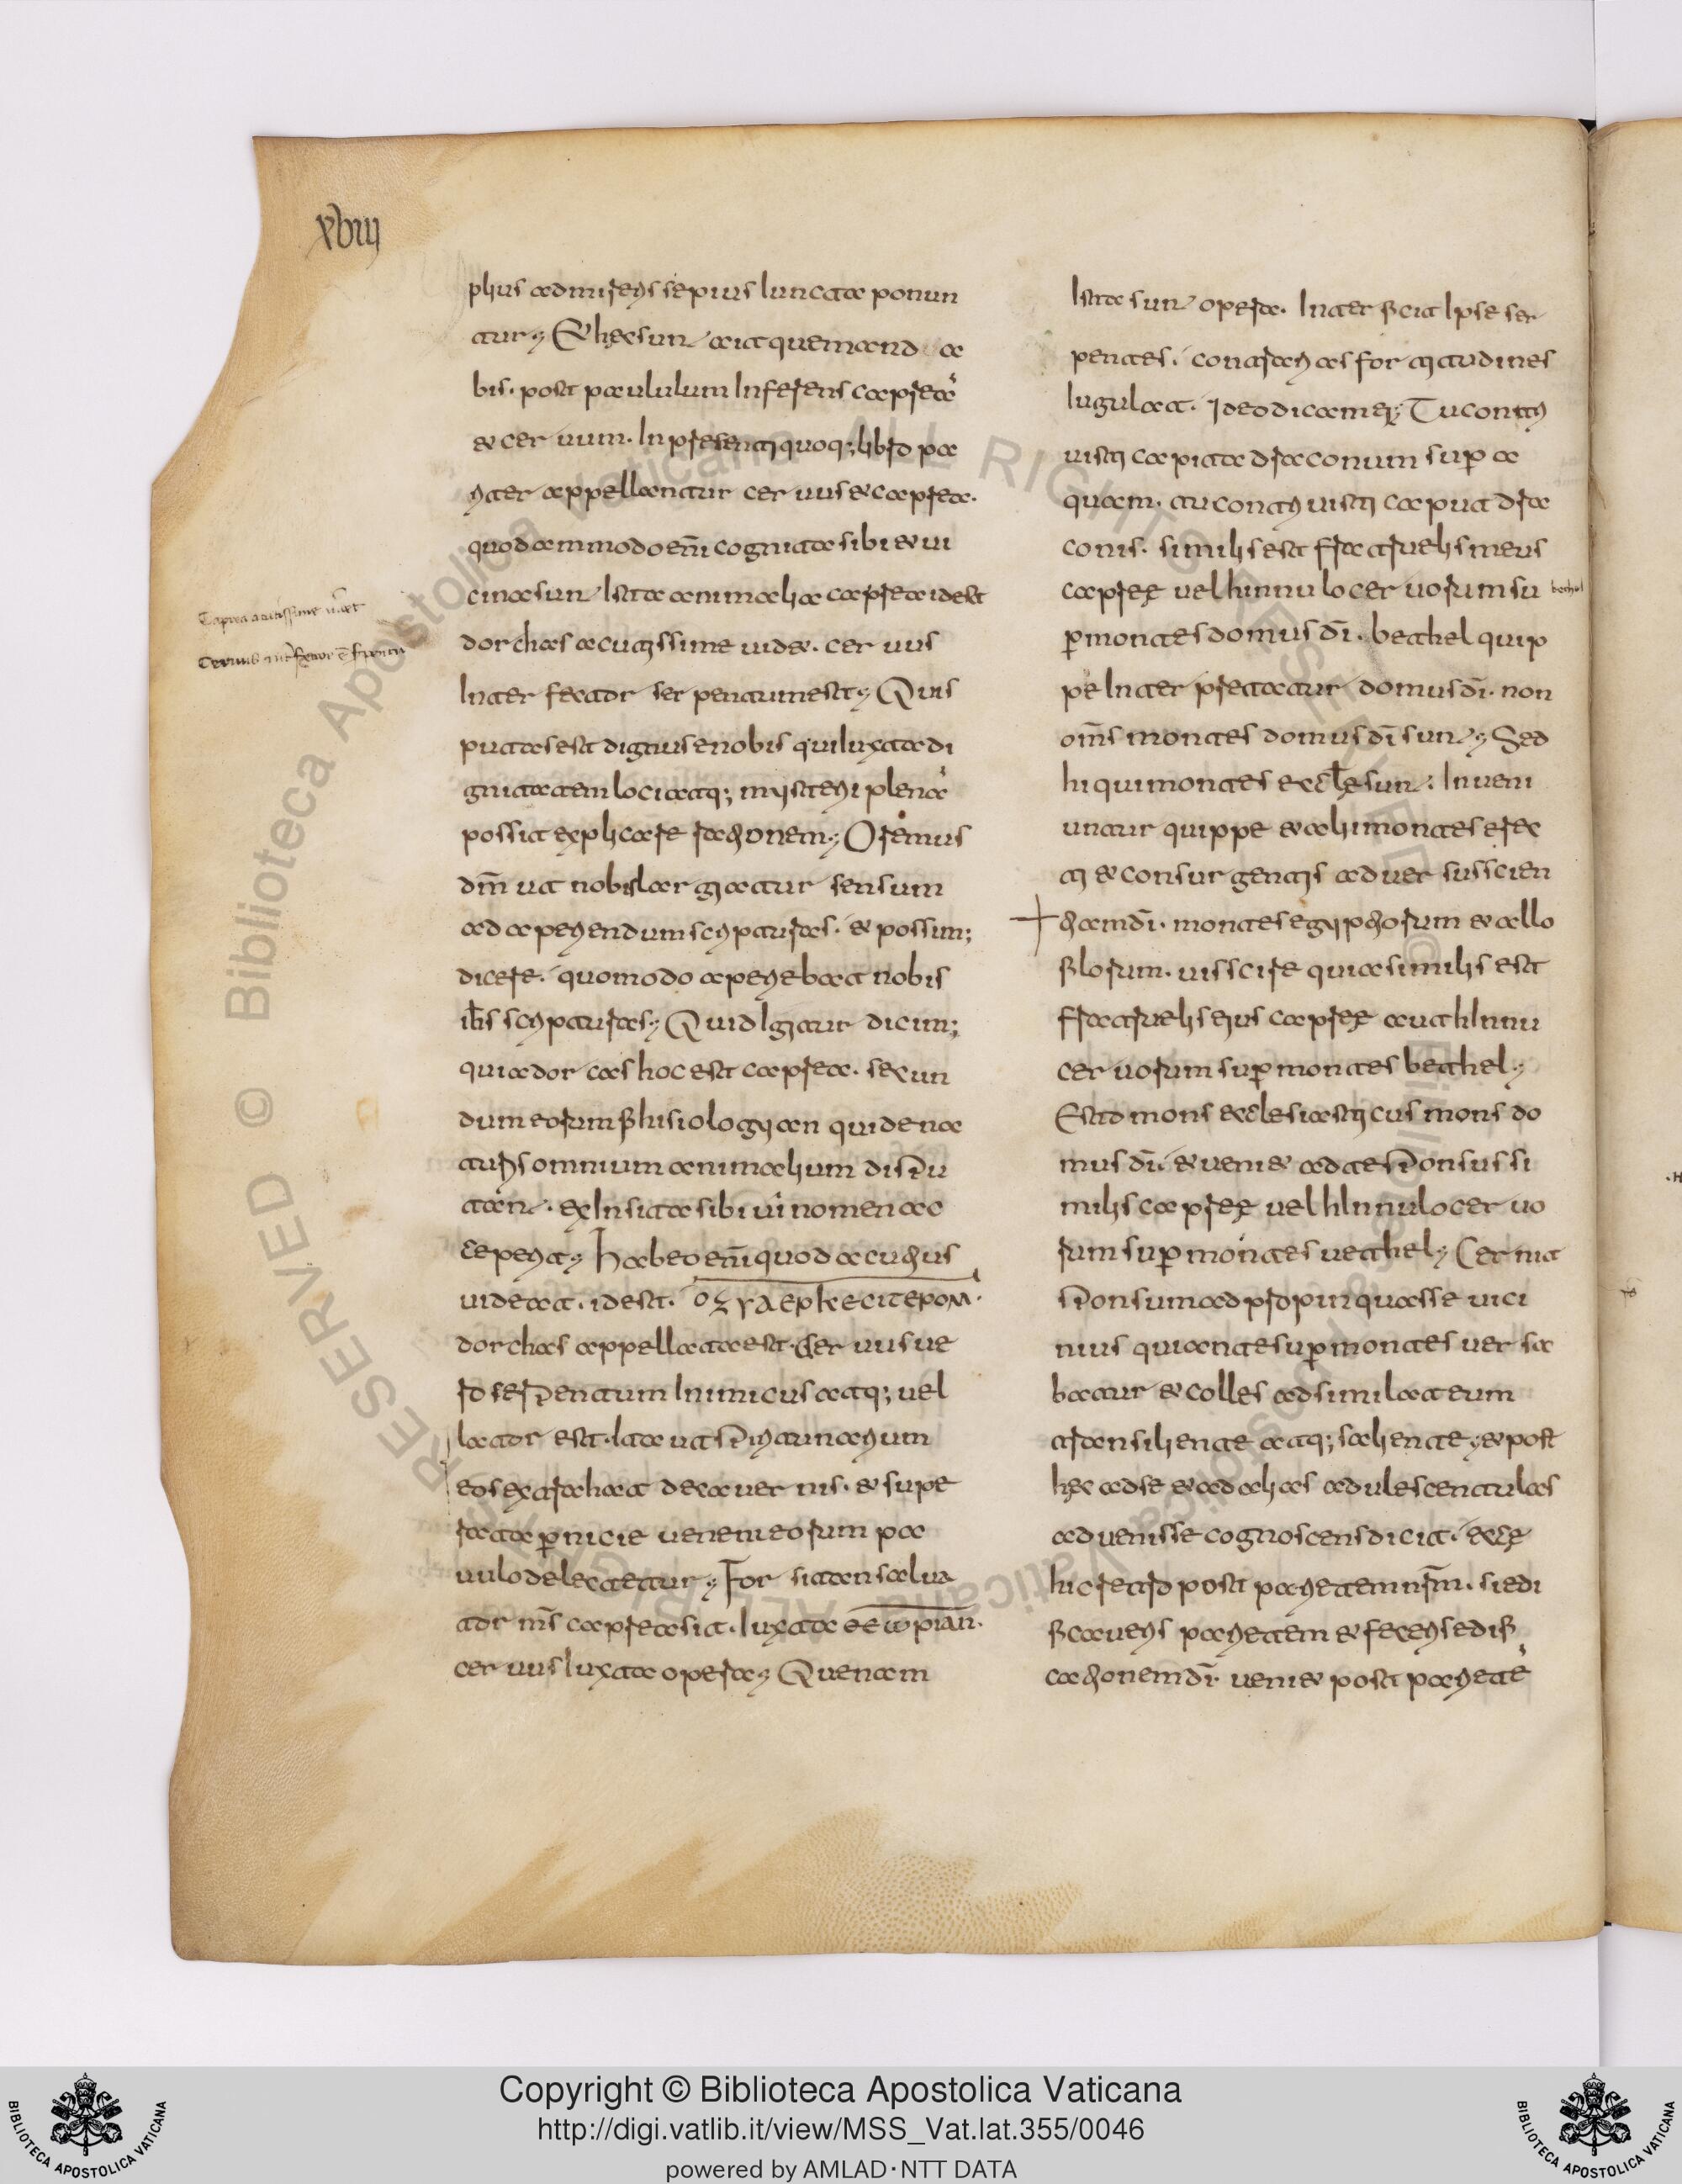 xviii
plius admirers sepius iuncta ponun
tur; Et hec sunt ait que mand a
bis. post paululum Inferens capreā
et ceruum. In presenti quoq; libro pa
riter appellantur ceruus et caprea.
quodammodo em̄ cognata sibi et ui
cina sunt Ista animalia caprea idest
dorchas acutissime uidet. ceruus
Interfector serpentum est; Quis
putas est dignus e nobis qui iuxta di
gnitatem loci atq; mysterii plenā
possit explicare rationem; Oremus
dm̄ ut nobis largiatur sensum
ad aperiendum scripturas. et possim;
dicere. quomodo aperiebat nobis
ih̄s scripturas; Quid Igitur dicim;
quia dorcas hoc est caprea. secun
dum eorum phisiologian qui de na
turis omnium animalium disputant.
ex Insita sibi ui nomen ac
ceperit; Habeo em̄ quod acutius
uideat. idest.
dorchas appellata est. Ceruus ue
ro serpentum Inimicus atq; uel
lator est. Ita ut spiritu narium
eos extrahat de cauernis. et supe
rata pernicie ueneni eorum pa
uulo delectetur; Forsitan salua
tor m̄s caprea sit. Iuxta
ceruus Iuxta opera; Quenam
Ista sunt opera. Interficit Ipse ser
pentes. contrarias fortitudines
Iugulat. Ideo dicam ei; Tu contri
uisti capita draconum sup a
quam. tu contriuisti caput dra
conis. similis est fratruelis meus
capree uel hinnulo ceruorum su
p montes domus dī. bethel quip
pe Interpretatur domus dī. non
om̄s montes domus dī sunt; Sed
hi qui montes eccl̄e sunt. Inueni
untur quippe et alii montes erec
ti et consurgentis aduersus scien
tiam dī. montes egyptiorum et allo
filorum. uis scire quia similis est
fratruelis eius capree aut hinnu
ceruorum sup montes bethel;
Esto mons ecclesiasticus mons do
mus dī. et ueniet ad te sponsus si
milis capree uel hinnulo ceruo
rum sup montes uethel; Cernit
sponsum adpropinquasse uici
nius qui ante sup montes uersa
batur et colles adsimilat eum
transiliente atq; saliente; et post
hec ad se et ad alias adulescentulas
aduenisse cognoscens dicit. ecce
hic retro post parietem nr̄m. si edi
ficaueris parietem et feceris edifi
cationem dī. ueniet post parietē
bethel
Copyright © Biblioteca Apostolica Vaticana
http://digi.vatlib.it/view/MSS_Vat.lat.355/0046
powered by AMLAD·NTT DATA
BIBLIOTECA APOSTOLICA VATICANA
BIBLIOTECA APOSTOLICA VATICANA